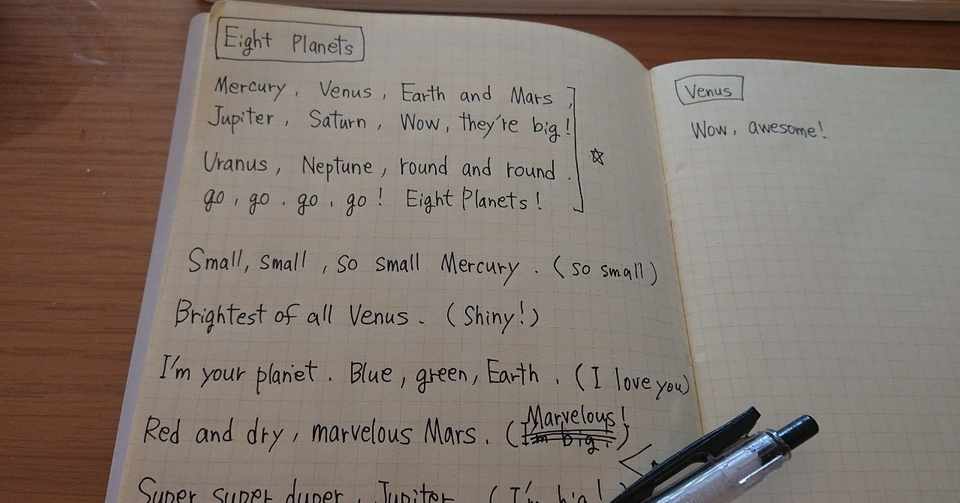 Eight Planets
Mercury, Venus, Earth and Mars,
Jupiter, Saturn, Wow, they're big!
Uranus, Neptune, round and round.
go, go. go, go! Eight Planets!
☆
Small, small, so small Mercury. (so small)
Brightest of all Venus. (Shiny!)
I'm your planet. Blue, green, Earth. (I love you)
Red and dry, marvelous Mars. (Marvelous!)
I'm big!
Super super duper, Jupiter (I'm big!
Venus
Wow, awesome!